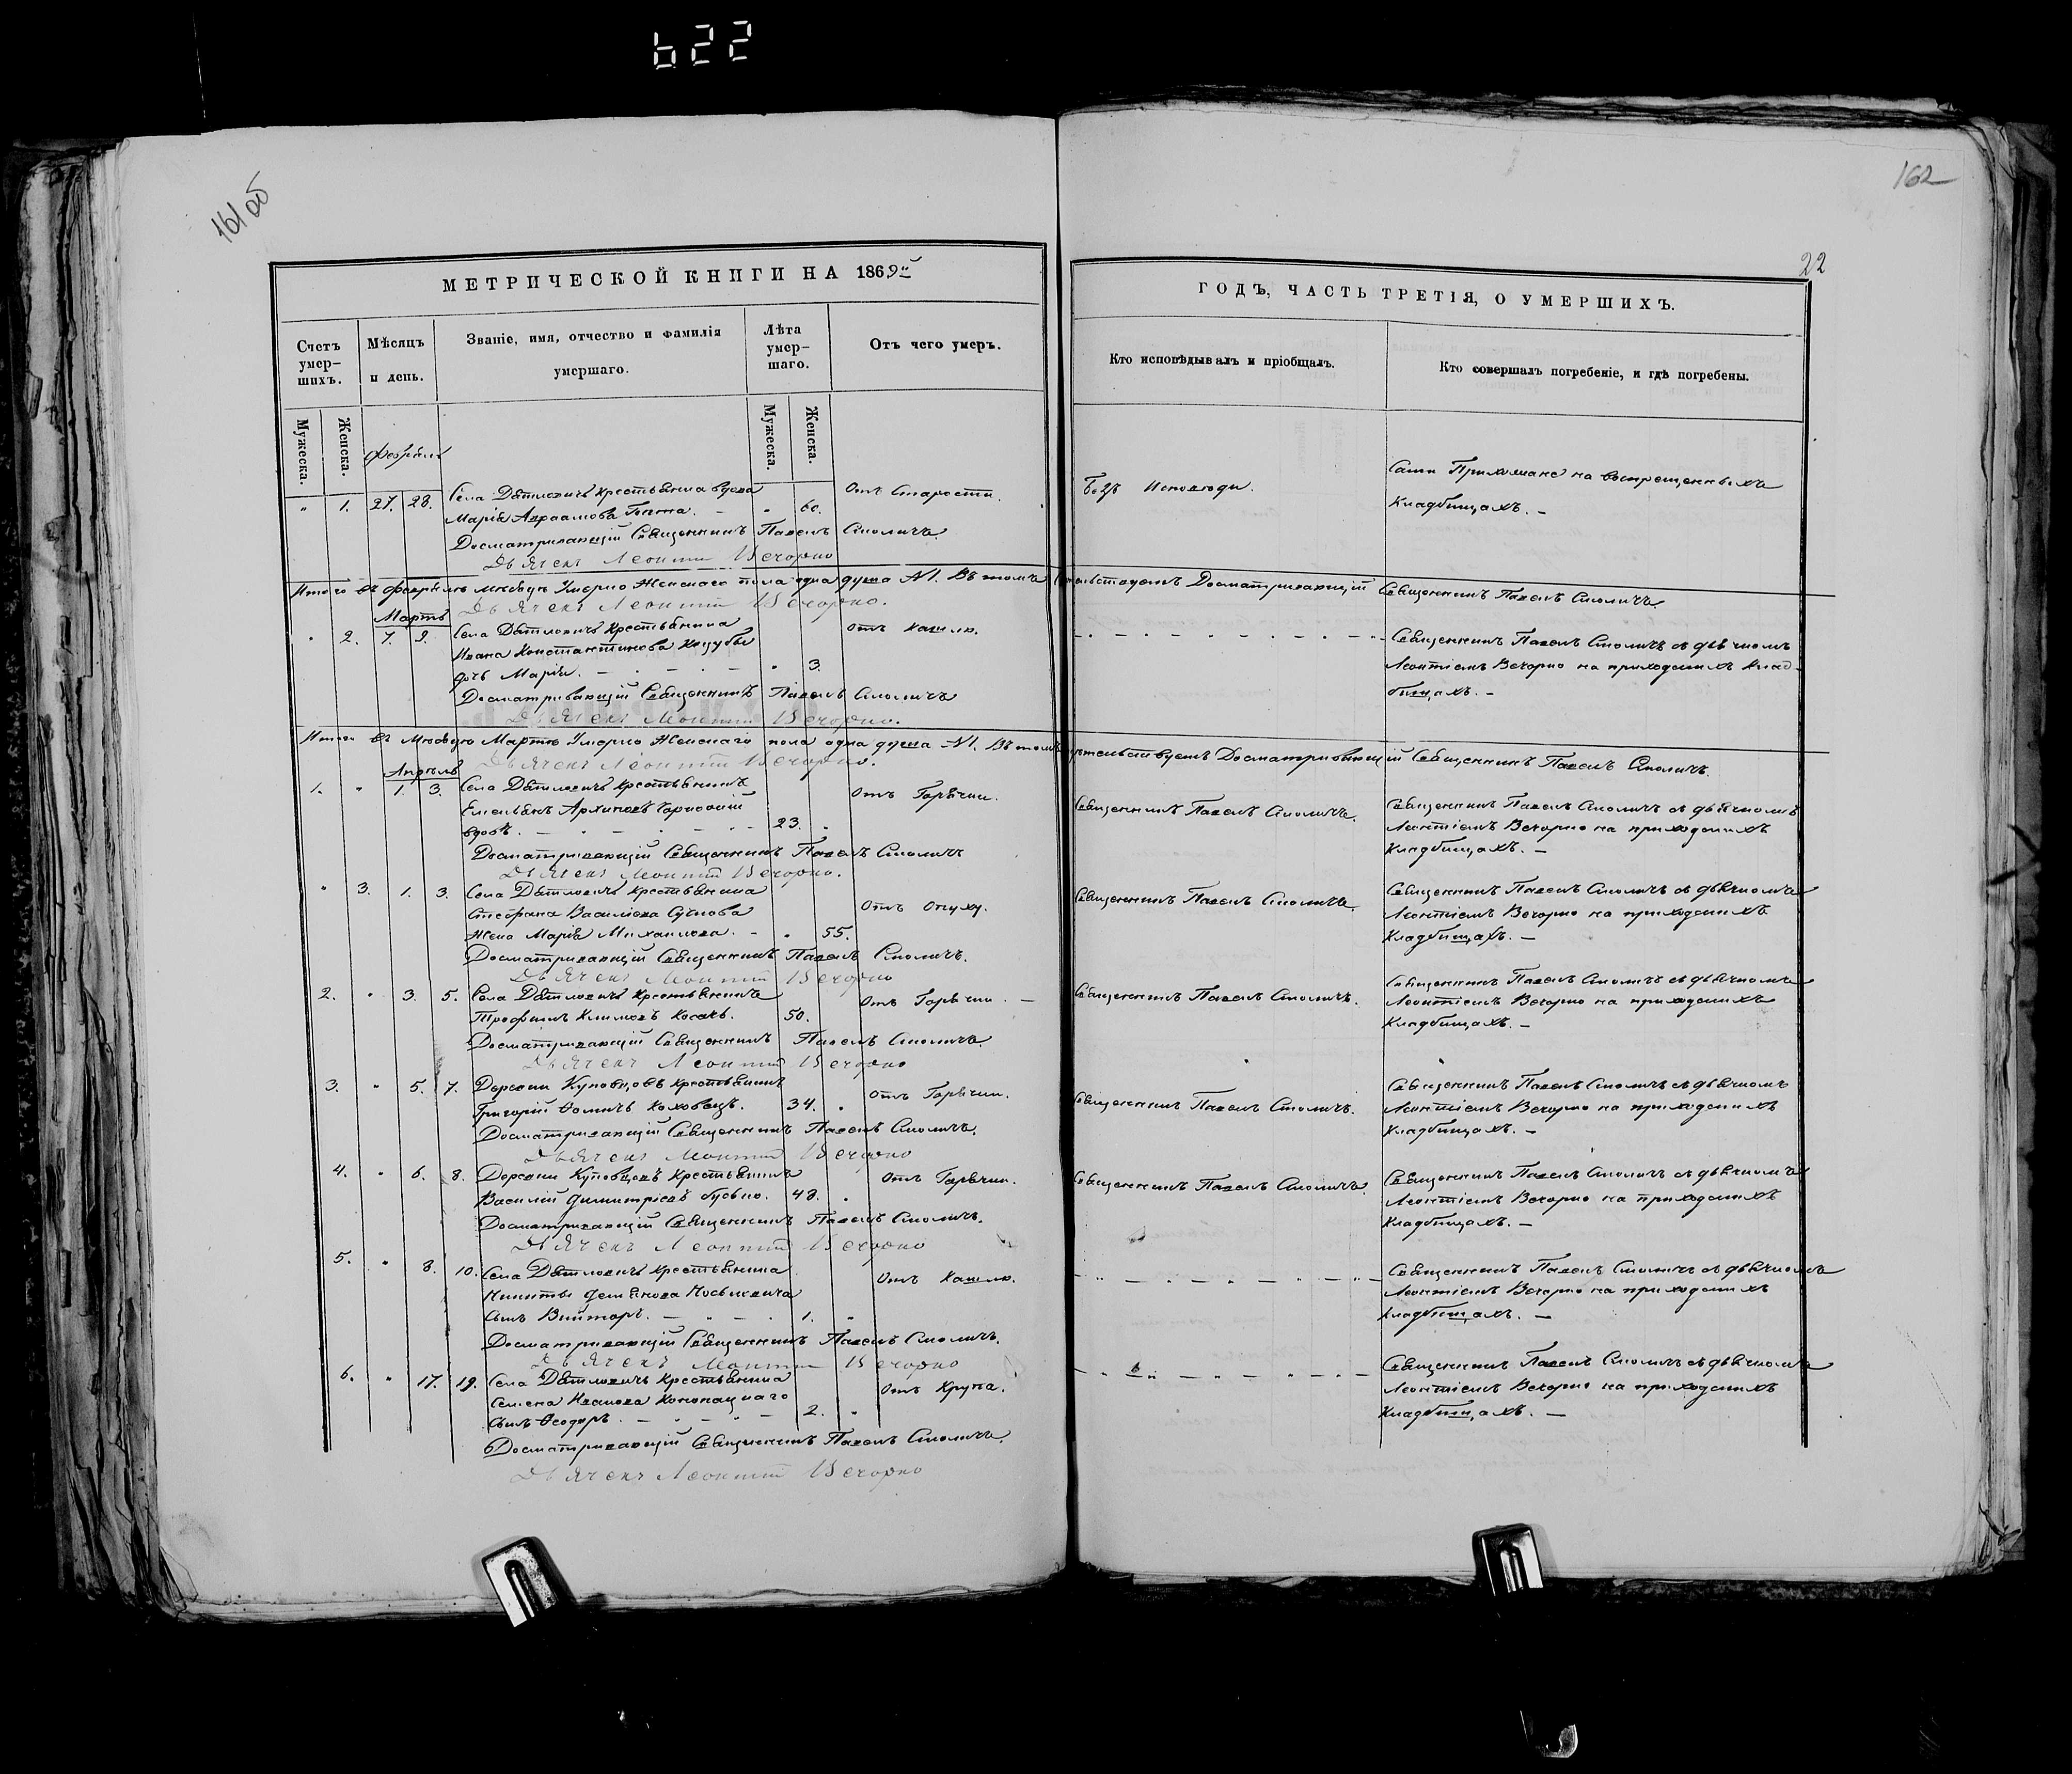 622
161 об
162
22
МЕТРИЧЕСКОЙ КНИГИ НА 1869й
ГОДЪ, ЧАСТЬ ТРЕТІЯ, О УМЕРШИХЪ.
Счетъ умер-
шихъ.
Мѣсяцъ
и день.
Званіе, имя, отчество и фамилія
умершаго.
Лѣта
умер-
шаго.
Отъ чего умеръ.
Кто исповѣдывалъ и пріобщалъ.
Кто совершалъ погребеніе, и гдѣ погребены.
Мужеска.
Женска.
Мужеска.
Женска.
Февраль
„ 1. 27. 28. Села Дятловичъ крестьянина вдова
Марія Авраамова „ 60.
Отъ Старости.
Безъ Исповѣди.
Сами Прихожане на воспрещенныхъ
Кладбищахъ. —
Досматривающій Священникъ Павелъ Смоличъ.
Дьячекъ Леонтій Вечорко
Итого въ Февралѣ мѣсяцѣ Умерло Женскаго пола одна душа №1. Въ томъ свидѣтельствуетъ Досматривающій Священникъ Павелъ Смоличъ
Дьячекъ Леонтій Вечорко.
Мартъ
„ 2. 7. 9. Села Дятловичъ Крестьянина
Ивана Константинова
дочь Марія. — „ 3.
Отъ Кашлю.
Священникъ Павелъ Смоличъ съ дьячкомъ
Леонтіемъ Вечорко на приходскихъ Клад-
бищахъ. —
Досматривающій Священникъ Павелъ Смоличъ
Дьячекъ Леонтій Вечорко.
Итого въ Мѣсяцѣ Мартѣ Умерло Женскаго пола одна душа №1. Въ томъ свидѣтельствуетъ Досматривающій Священникъ Павелъ Смоличъ.
Дьячекъ Леонтій Вечорко.
Апрѣль
1. „ 1. 3. Села Дятловичъ Крестьянинъ
Емельянъ Архиповъ
вдовъ. — 23. „
Отъ Горячки.
Священникъ Павелъ Смоличъ.
Священникъ Павелъ Смоличъ съ дьячкомъ
Леонтіемъ Вечорко на приходскихъ
Кладбищахъ. —
Досматривающій Священникъ Павелъ Смоличъ
Дьячекъ Леонтій Вечорко.
„ 3. 1. 3. Села Дятловичъ Крестьянина
Стефана Василіева
Жена Марія Михаилова. — „ 55.
Отъ Опуху.
Священникъ Павелъ Смоличъ.
Священникъ Павелъ Смоличъ съ дьячкомъ
Леонтіемъ Вечорко на приходскихъ
Кладбищахъ. —
Досматривающій Священникъ Павелъ Смоличъ.
Дьячекъ Леонтій Вечорко
2. „ 3. 5. Села Дятловичъ Крестьянинъ
Трофимъ Климовъ Косакъ. 50.
Отъ Горячки. —
Священникъ Павелъ Смоличъ.
Священникъ Павелъ Смоличъ съ дьячкомъ
Леонтіемъ Вечорко на приходскихъ
Кладбищахъ. —
Досматривающій Священникъ Павелъ Смоличъ.
Дьячекъ Леонтій Вечорко
3. „ 5. 7. Деревни Куповцовъ крестьянинъ
Григорій Ѳоминъ Коховецъ. 34. „
Отъ Горячки.
Священникъ Павелъ Смоличъ.
Священникъ Павелъ Смоличъ съ дьячкомъ
Леонтіемъ Вечорко на приходскихъ
Кладбищахъ. —
Досматривающій Священникъ Павелъ Смоличъ.
Дьячекъ Леонтій Вечорко
4. „ 6. 8. Деревни Куповцовъ Крестьянинъ
Василій Димитріевъ 48. „
Отъ Горячки.
Священникъ Павелъ Смоличъ.
Священникъ Павелъ Смоличъ съ дьячкомъ
Леонтіемъ Вечорко на приходскихъ
Кладбищахъ. —
Досматривающій Священникъ Павелъ Смоличъ.
Дьячекъ Леонтій Вечорко
5. „ 8. 10. Села Дятловичъ Крестьянина
Никиты Демьянова
Сынъ Викторъ. — 1. „
Отъ Кашлю.
Священникъ Павелъ Смоличъ съ дьячкомъ
Леонтіемъ Вечорко на приходскихъ
Кладбищахъ. —
Досматривающій Священникъ Павелъ Смоличъ.
Дьячекъ Леонтій Вечорко
6. „ 17. 19. Села Дятловичъ Крестьянина
Семена Иванова Конопацкаго
Сынъ Ѳеодоръ. — 2. „
Отъ Крупа.
Священникъ Павелъ Смоличъ съ дьячкомъ
Леонтіемъ Вечорко на приходскихъ
Кладбищахъ. —
Досматривающій Священникъ Павелъ Смоличъ.
Дьячекъ Леонтій Вечорко